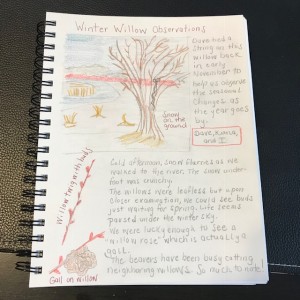 Winter Willow Observations
Dave tied a
string on this
willow back
in early
November to
help us observe
the seasonal
changes as
the year goes
by.
Snow
on the
ground
Dave, Karla,
and I
Willow twig with buds
Cold afternoon, snow flurries as we
walked to the river. The snow under-
foot was crunchy.
The willows were leafless but upon
closer examination, we could see buds
just waiting for spring. Life seems
paused under the winter sky.
We were lucky enough to see a
"willow rose" which is actually a
gall.
The beavers have been busy cutting
neighboring willows. So much to note!
Gall on willow